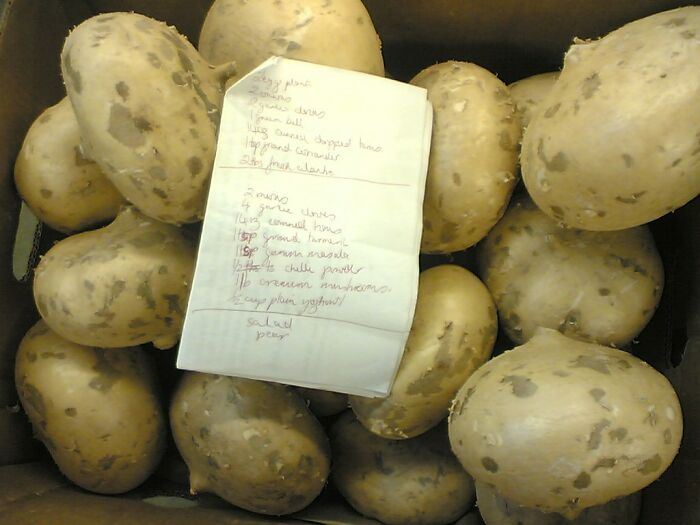 2 eggplant
2 onions
3 garlic cloves
1 green bell
14oz canned chopped toms
1 tsp ground coriander
2 tbs fresh cilantro
2 onions
4 garlic cloves
14oz canned toms
1 tsp ground turmeric
1 tsp garam masala
1/2 ts chille powder
1 lb cremini mushrooms
1/2 cup plain yoghurt
salad
pear